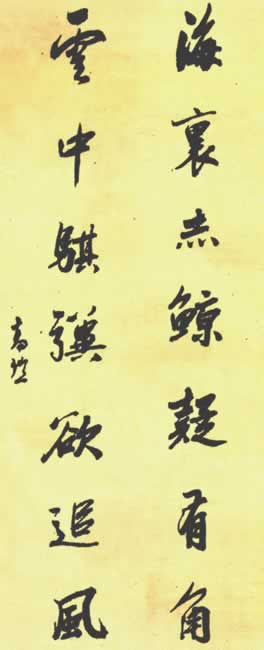 海裏赤鯨疑有角
雲中騏驥欲追風